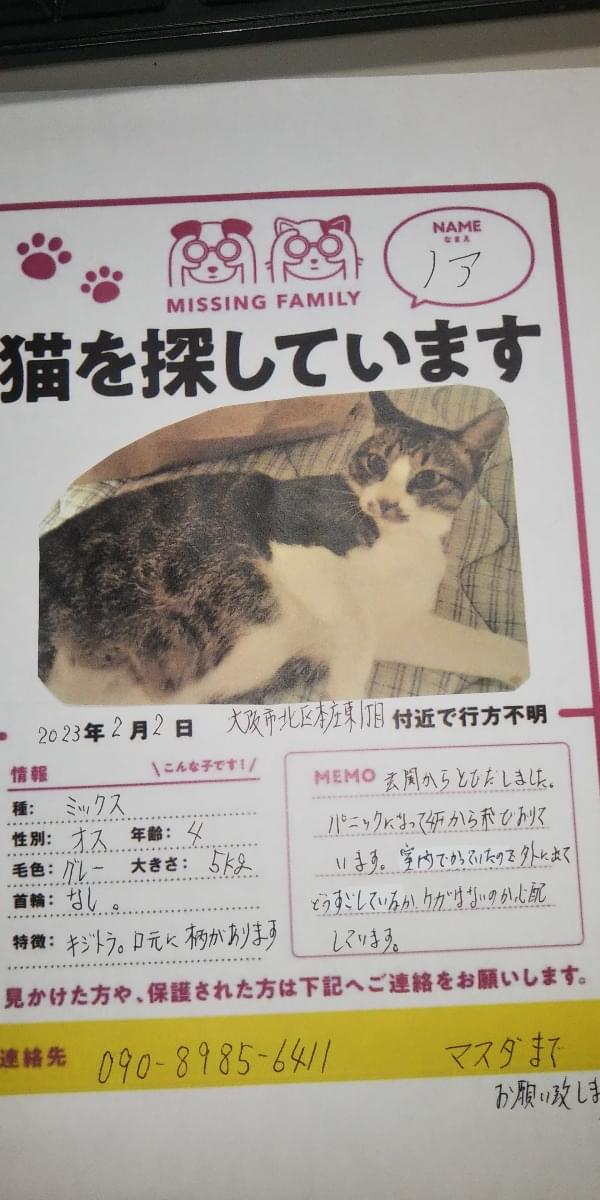 NAME
なまえ
ノア
MISSING FAMILY
猫を探しています
2023年2月2日 大阪市北区本庄東1丁目 付近で行方不明
情報 \こんな子です!/
種: ミックス
性別: オス 年齢: 4
毛色: グレー 大きさ: 5kg
首輪: なし。
特徴: キジトラ。口元に柄があります
MEMO 玄関からとびだしました。
パニックになって4Fから飛びおりて
います。室内でかっていたので外に出て
どうすごしているか、ケガはないのか心配
しています。
見かけた方や、保護された方は下記へご連絡をお願いします。
連絡先 090-8985-6411 マスダまで
お願い致しま